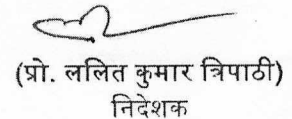 (प्रो. ललित कुमार त्रिपाठी)
निदेशक